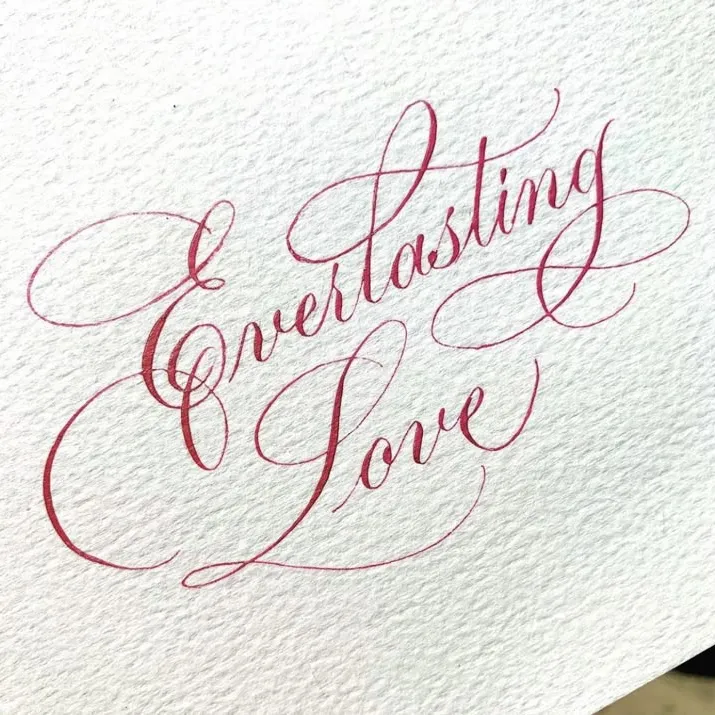 Everlasting
Love